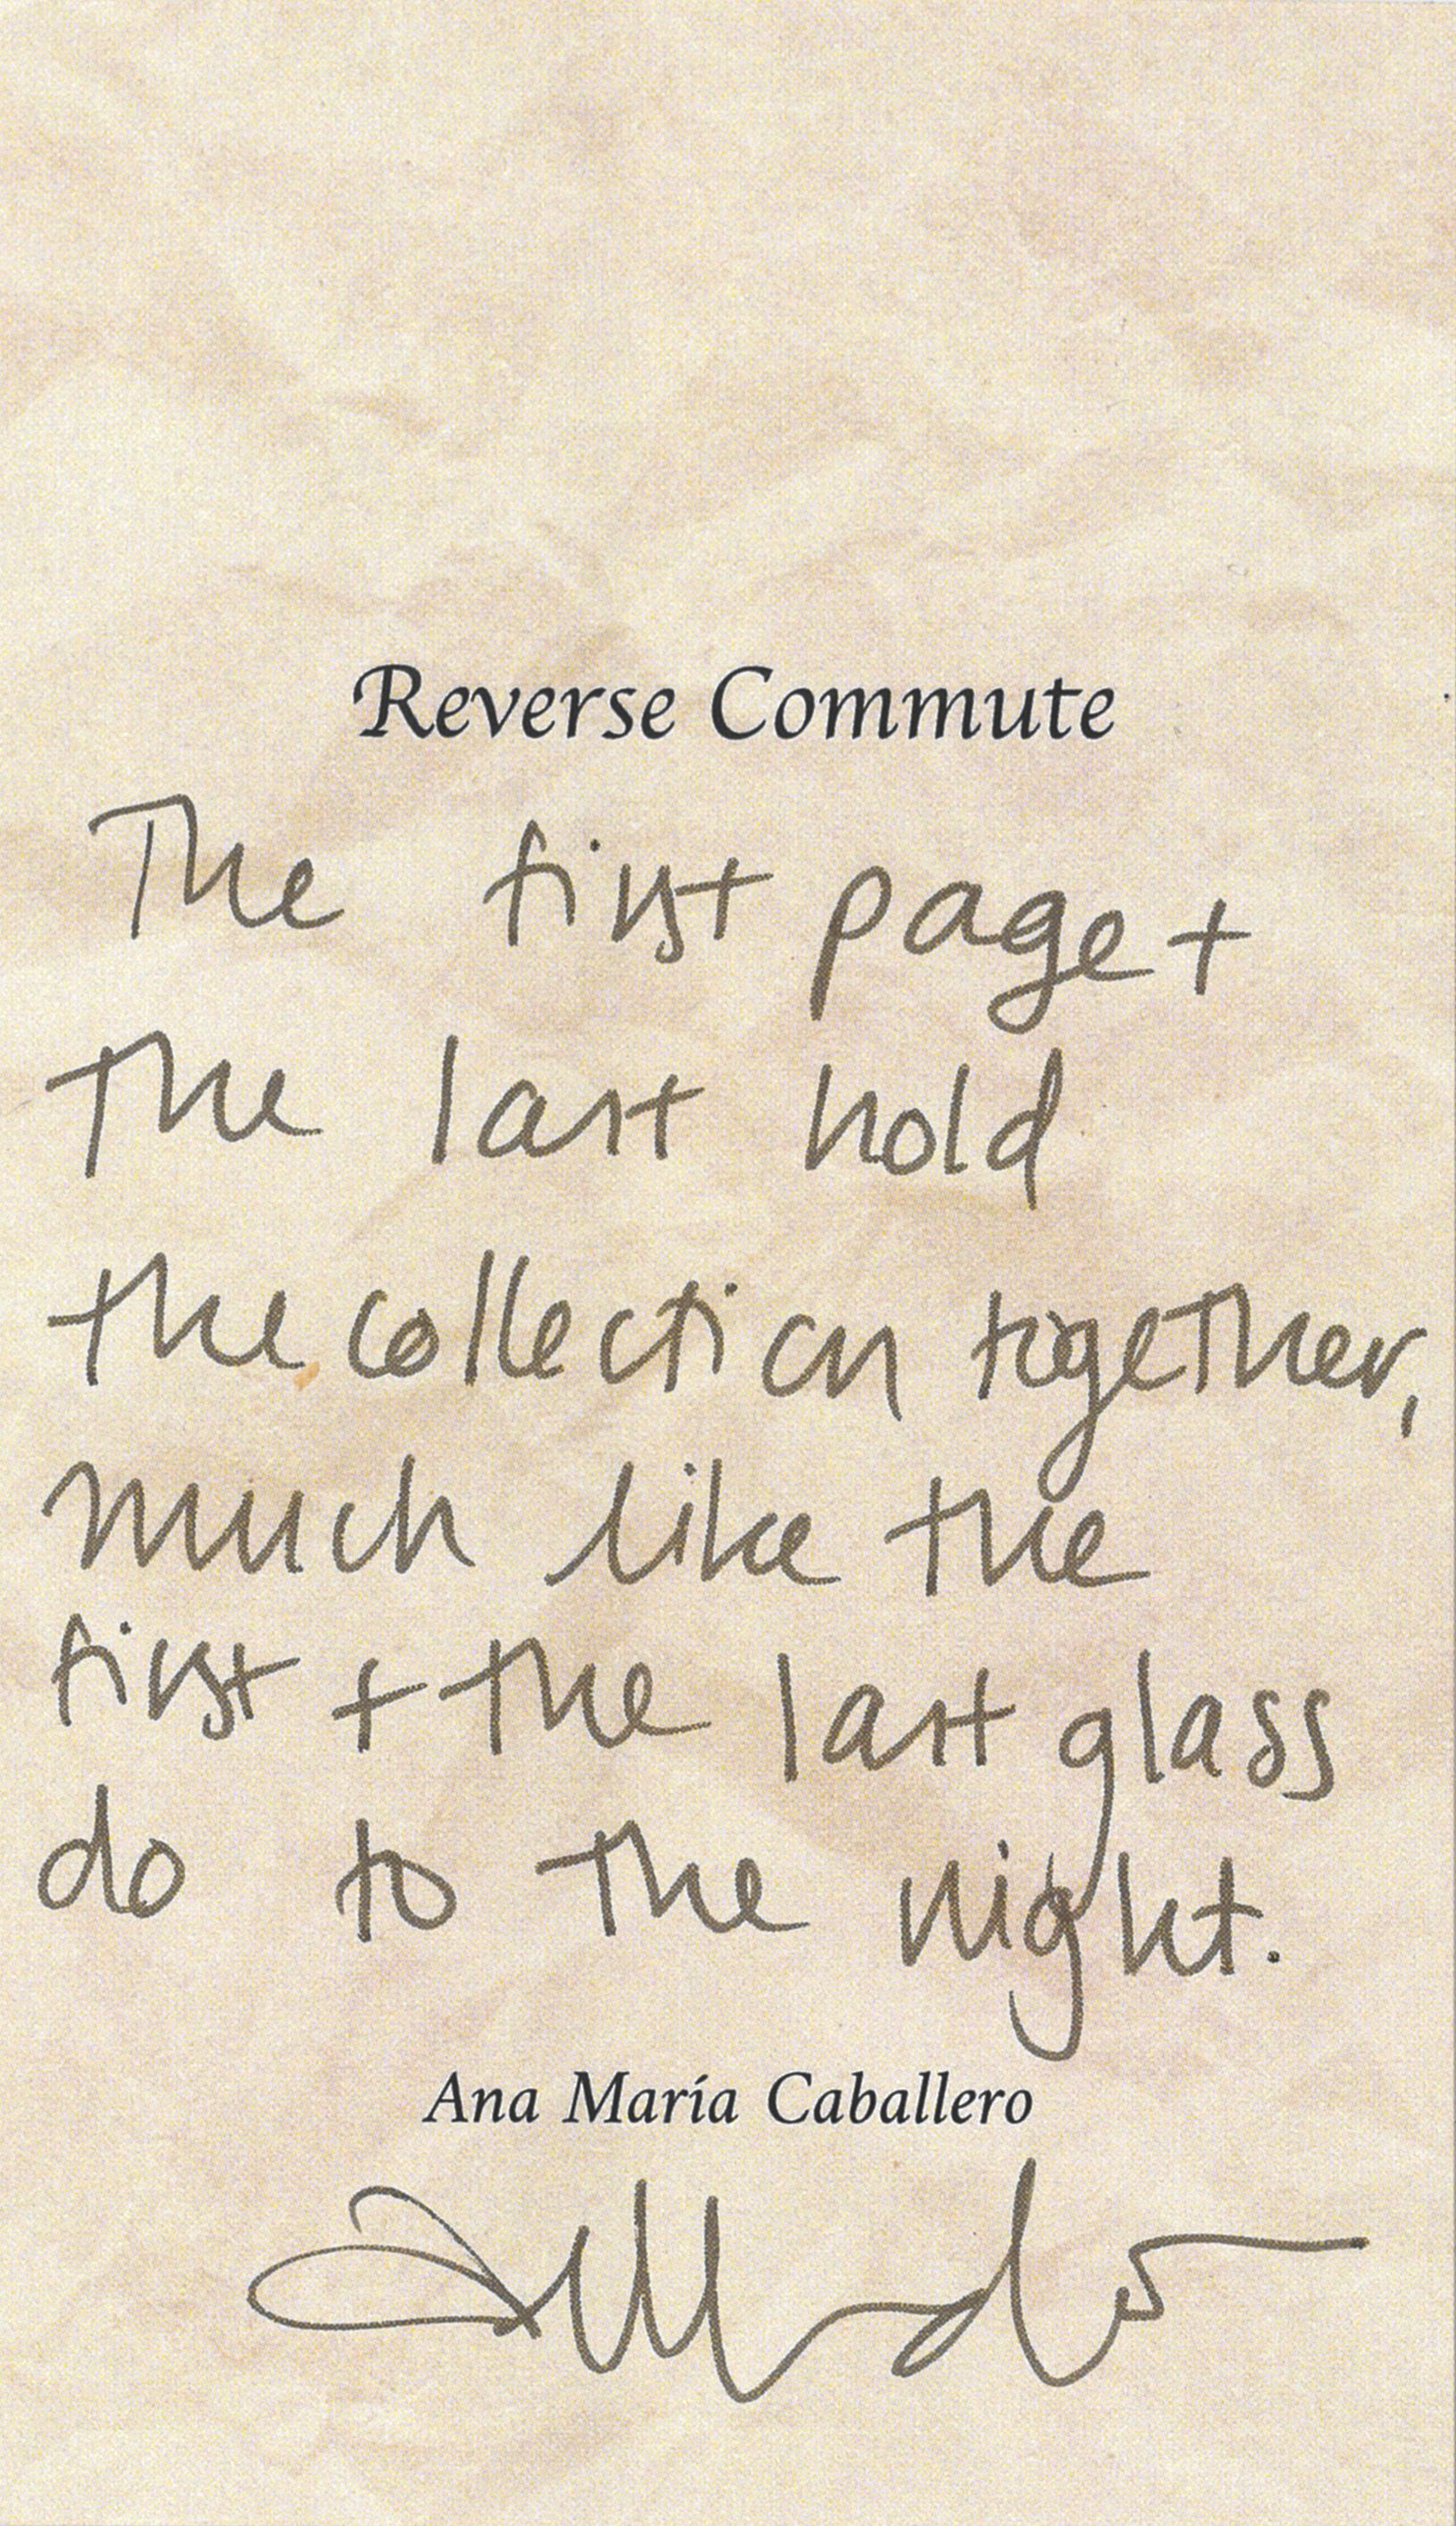 Reverse Commute
The first page +
the last hold
the collection together,
much like the
first + the last glass
do to the night.
Ana María Caballero